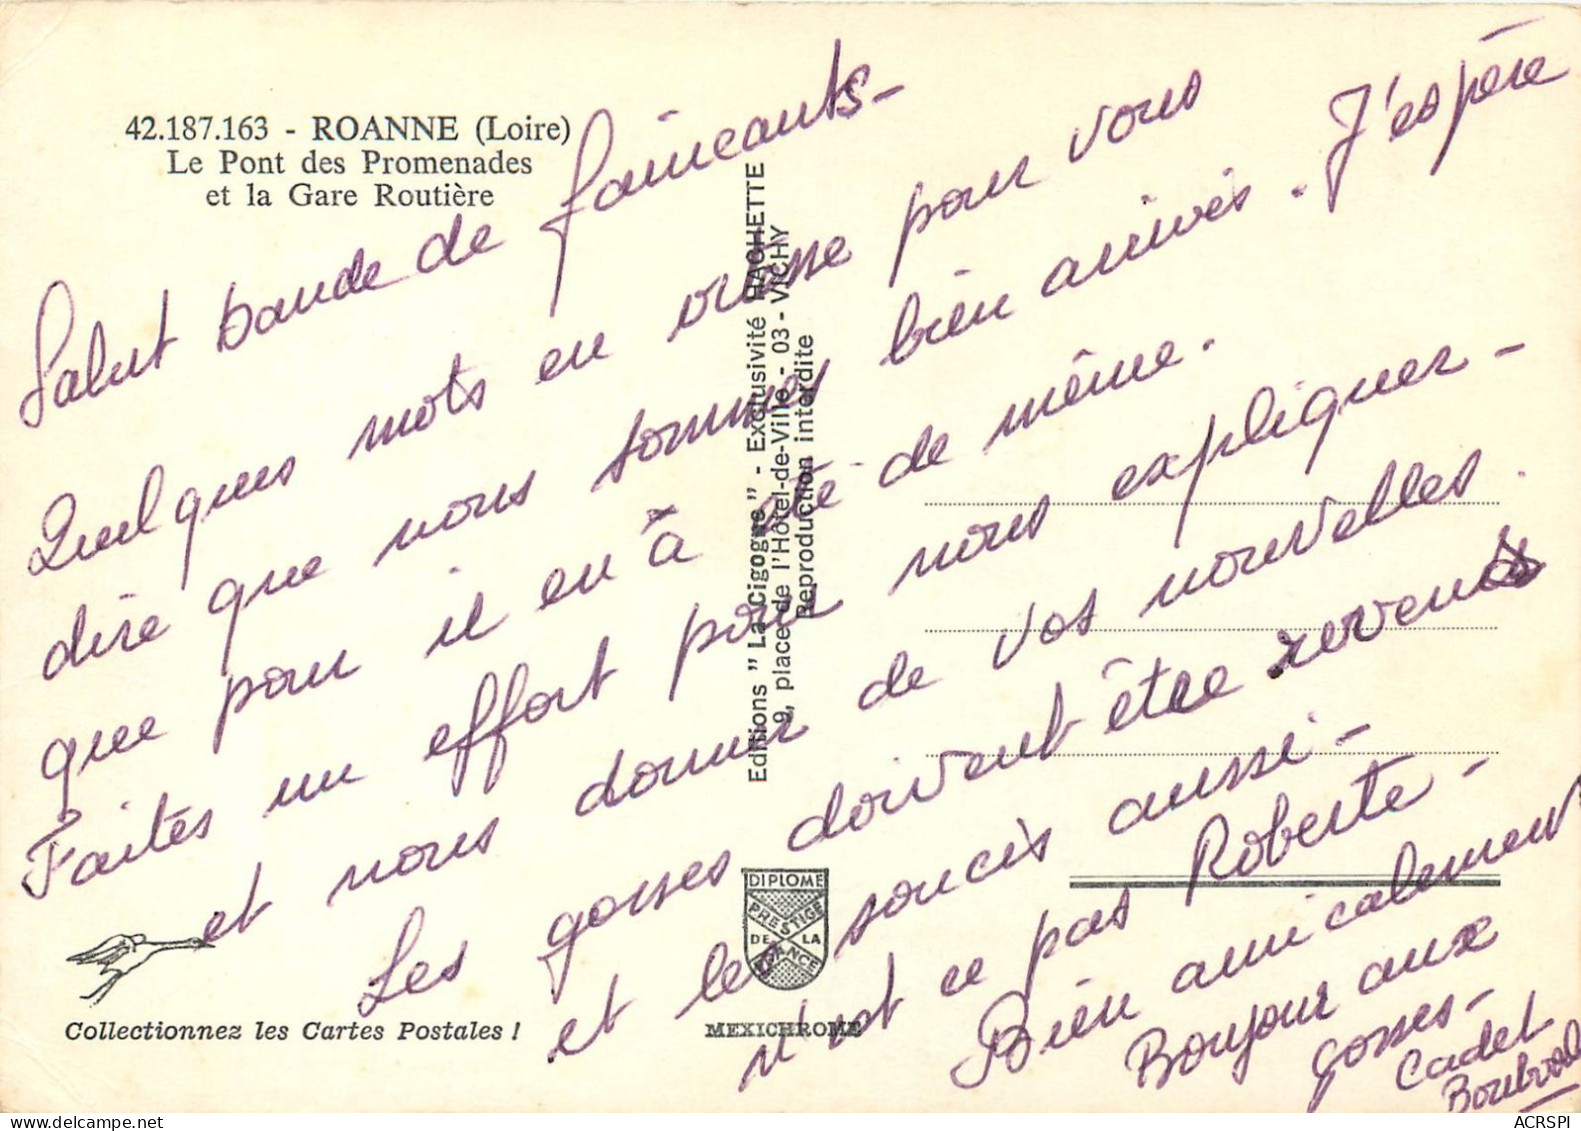 42.187.163 - ROANNE (Loire)
Le Pont des Promenades
et la Gare Routière
Salut bande de fainéants-
Quelques mots en vitesse pour vous
dire que nous sommes bien arrivés. J'espère
que pour il en à été de même.
Faites un effort pour nous expliquer-
et nous donner de vos nouvelles.
Les gosses doivent être revenus
et les soucis aussi-
n'est ce pas Roberte-
Bien amicalement
Bonjour aux
gosses-
Cadet
Editions "La Cigogne" - Exclusivité HACHETTE
9, place de l'Hôtel-de-Ville - 03 - VICHY
Reproduction interdite
DIPLOME
PRESTIGE
DE LA
FRANCE
MEXICHROME
Collectionnez les Cartes Postales !
ACRSPI